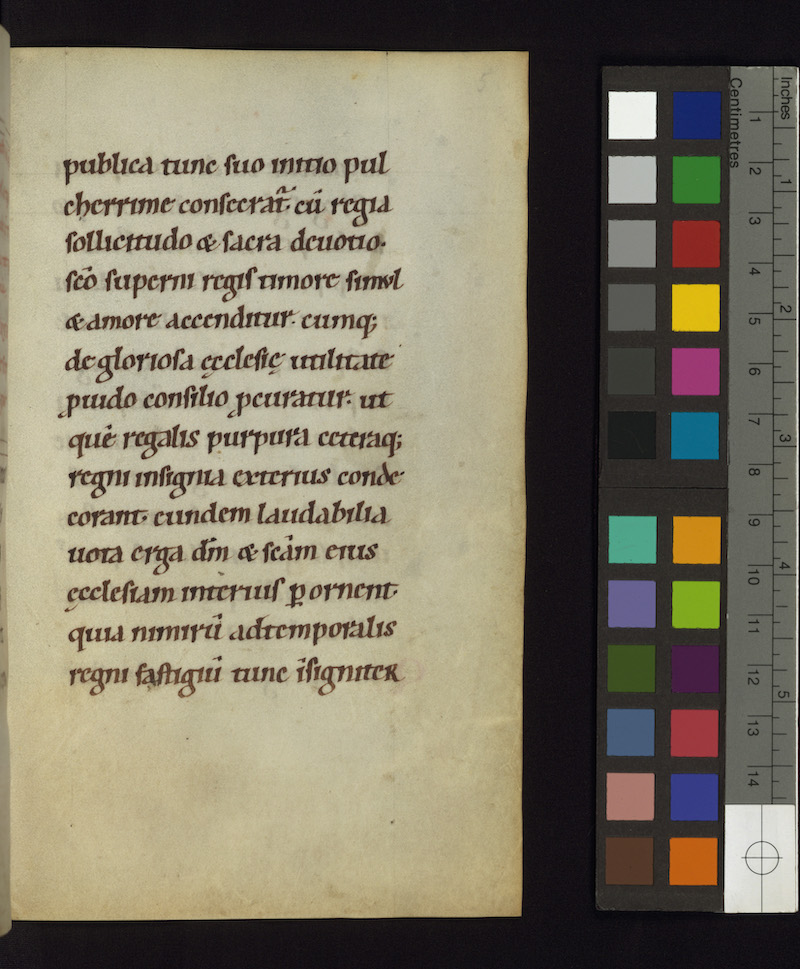 publica tunc suo initio pul
cherrime consecrat̃· cū regia
sollicitudo & sacra deuotio·
scō superni regis timore simul
& amore accenditur· cumq;
de gloriosa ęcclesię utilitate
ꝓuido consilio ꝓcuratur· ut
quē regalis purpura ceteraq;
regni insignia exterius conde
corant· eundem laudabilia
uota erga dm̄ & scām eius
ęcclesiam interius ꝑornent·
quia nimirū ad temporalis
regni fastigiū tunc īsigniter
Centimetres
1
2
3
4
5
6
7
8
9
10
11
12
13
14
Inches
1
2
3
4
5